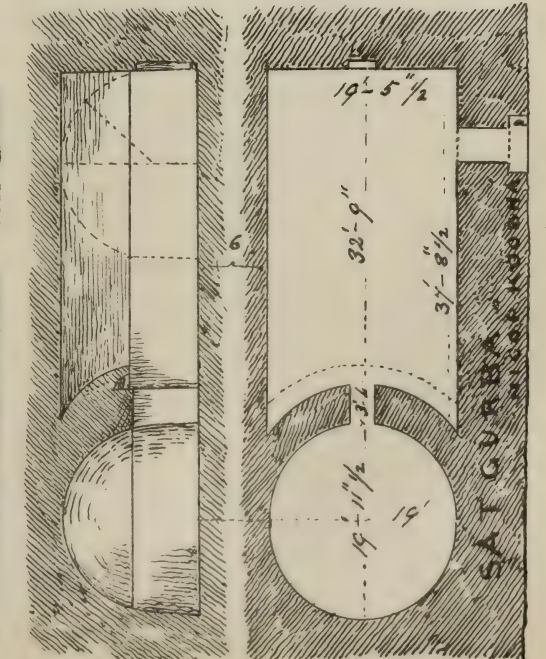 19'-5"1/2
32'-9"
37'-8"1/2
6
3'6
19'-11"1/2
19'
SAT GURBA
NIGOR KOODHA